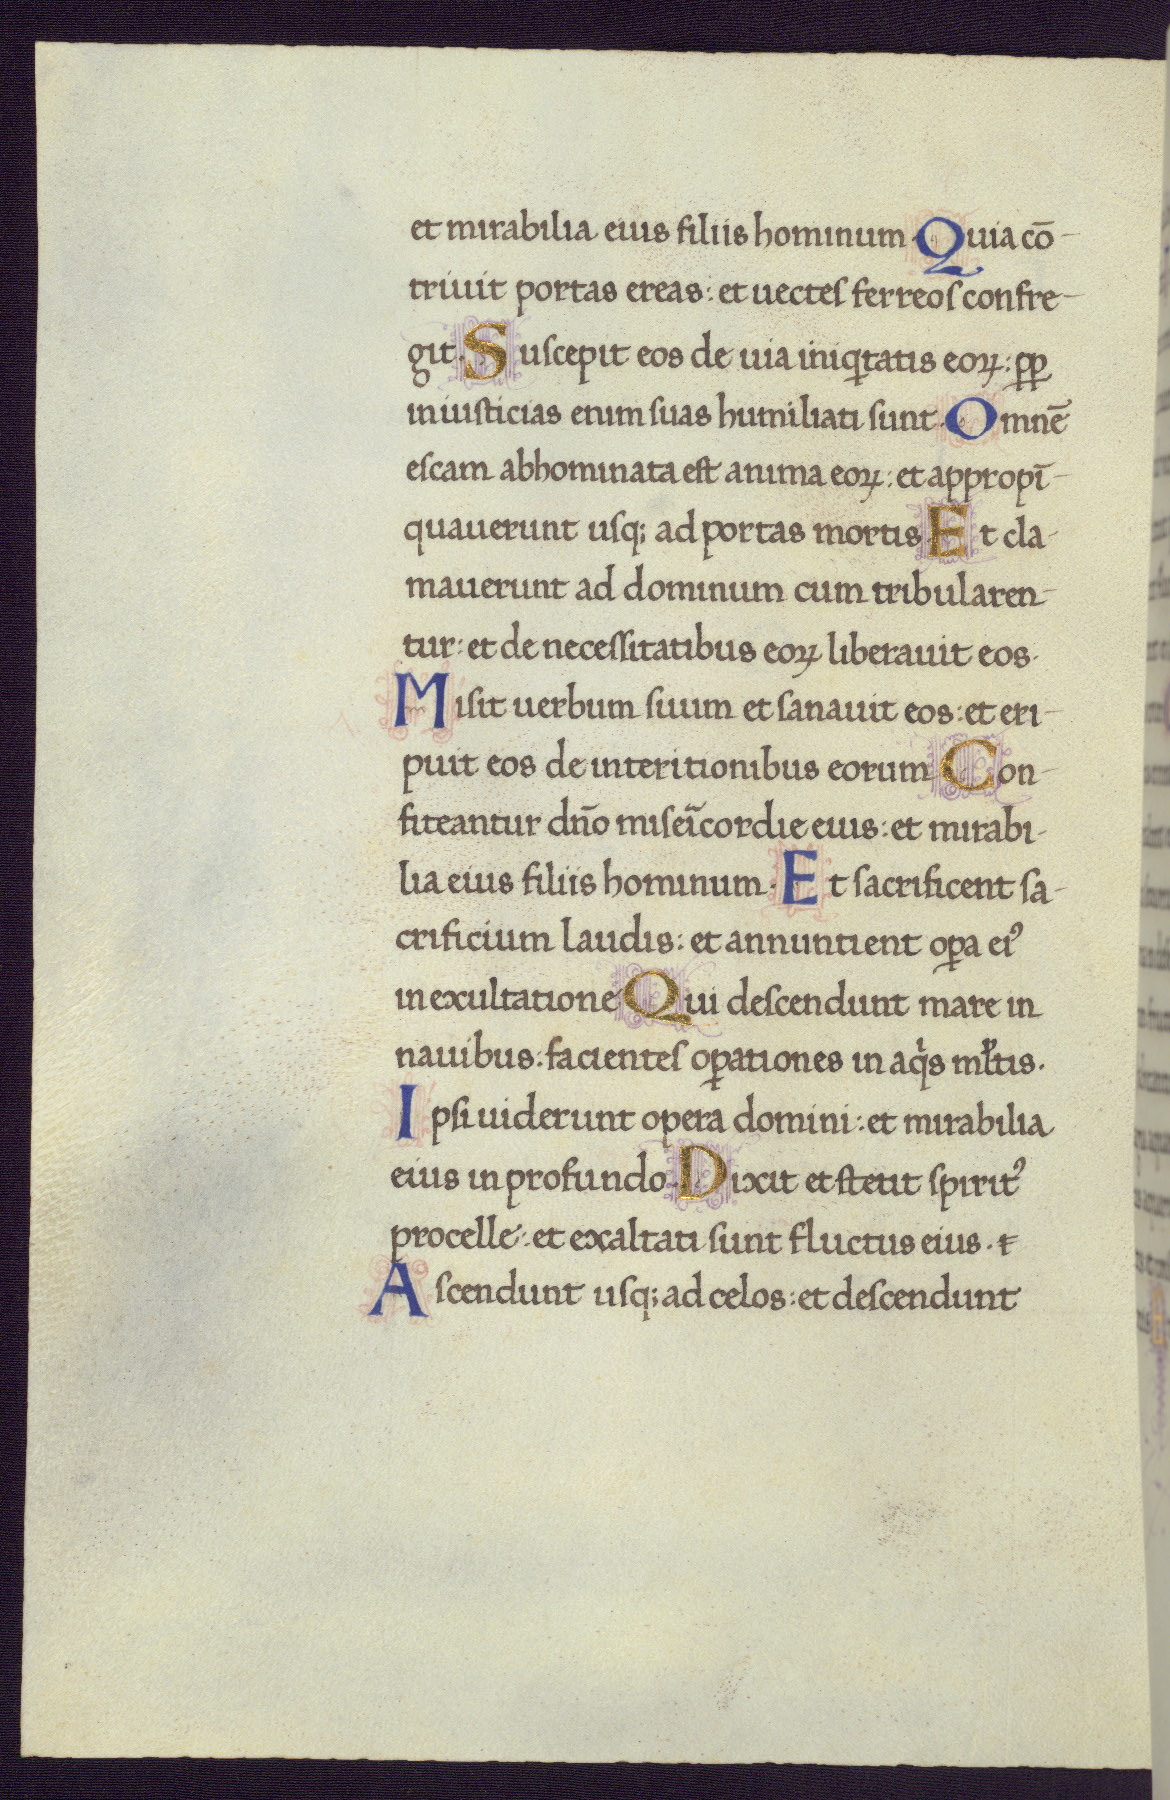 et mirabilia eius filiis hominum. Quia cō-
triuit portas ereas: et uectes ferreos confre-
git. Suscepit eos de uia iniq̄tatis eoꝝ: ꝓꝑ
iniusticias enim suas humiliati sunt. Omnē
escam abhominata est anima eoꝝ: et appropī-
quauerunt usq; ad portas mortis Et cla-
mauerunt ad dominum cum tribularen-
tur: et de necessitatibus eoꝝ liberauit eos.
Misit uerbum suum et sanauit eos: et eri-
puit eos de interitionibus eorum Con-
fiteantur dn̄o misei̅cordie eius: et mirabi-
lia eius filiis hominum. Et sacrificent sa-
crificium laudis: et annuntient oꝑa eiꝰ
in exultatione Qui descendunt mare in
nauibus: facientes oꝑationes in aqͥs ml̄tis.
Ipsi uiderunt opera domini: et mirabilia
eius in profundo. Dixit et stetit spiritꝰ
procelle: et exaltati sunt fluctus eius.
Ascendunt usq; ad celos: et descendunt